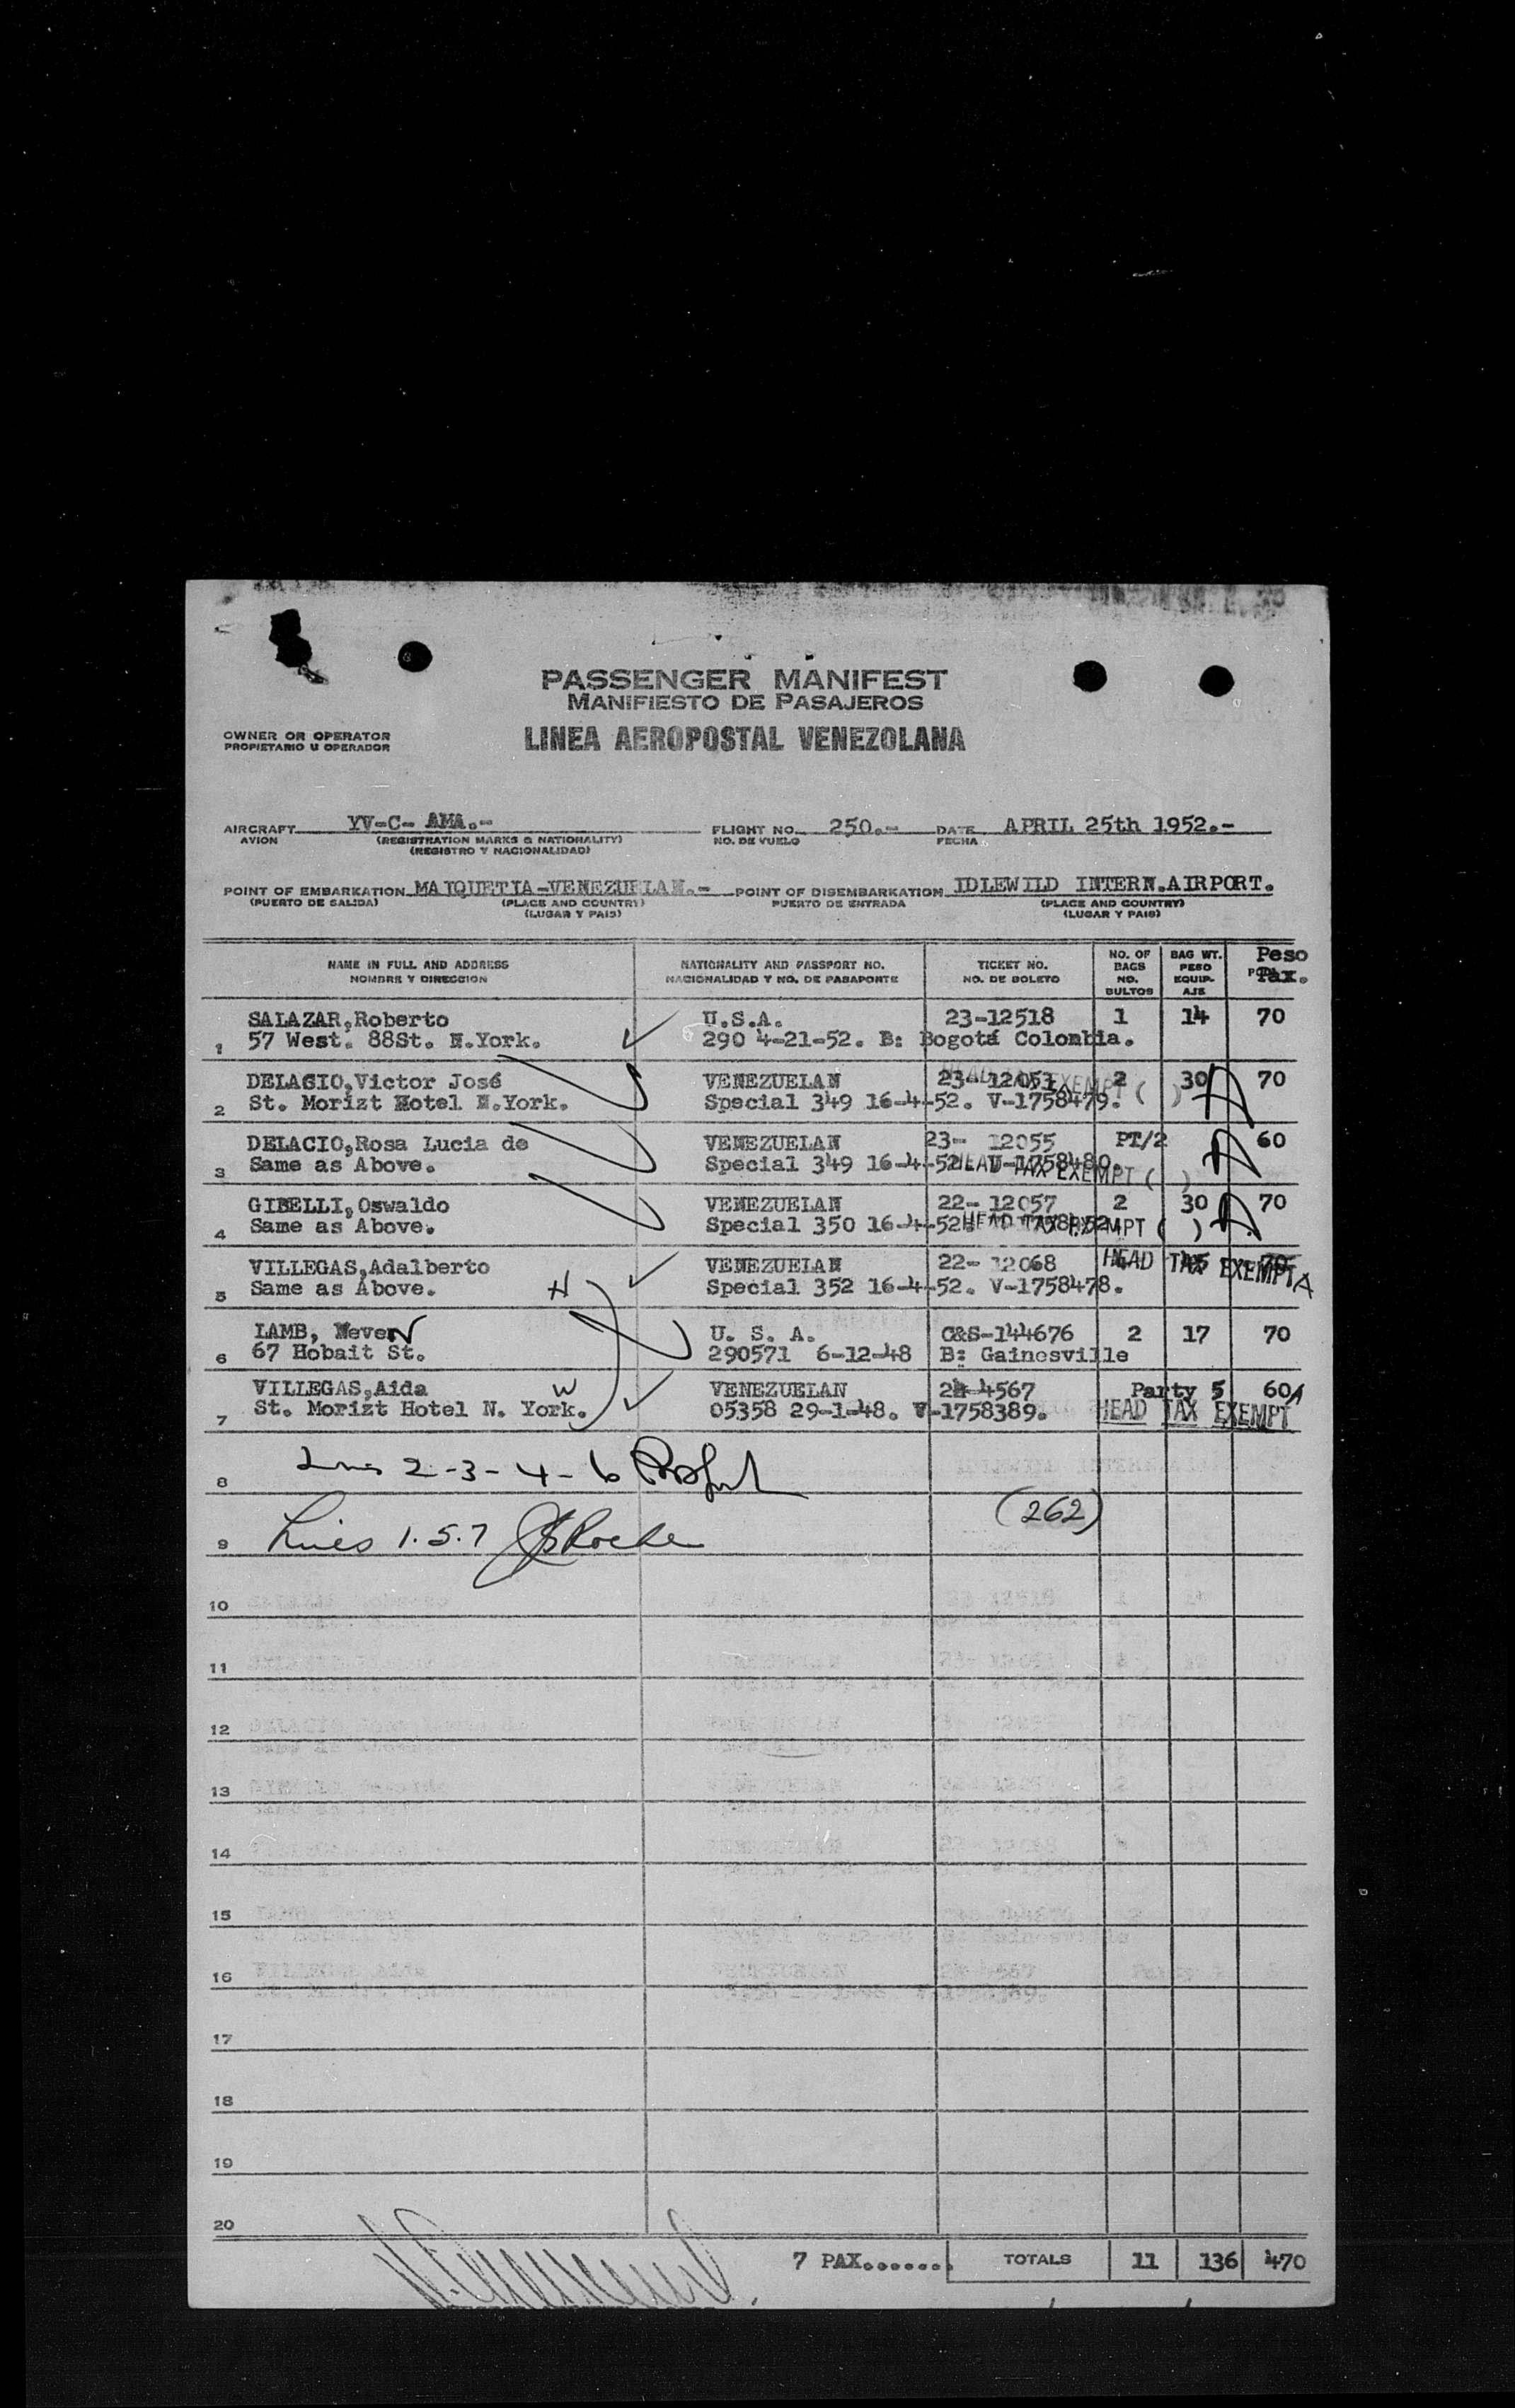 PASSENGER MANIFEST
MANIFIESTO DE PASAJEROS
OWNER OR OPERATOR
PROPIETARIO U OPERADOR
LINEA AEROPOSTAL VENEZOLANA
AIRCRAFT YV-C- AMA.- FLIGHT NO. 250.- DATE APRIL 25th 1952.-
AVION (REGISTRATION MARKS & NATIONALITY) NO. DE VUELO FECHA
(REGISTRO Y NACIONALIDAD)
POINT OF EMBARKATION MAIQUETIA-VENEZUELAN.- POINT OF DISEMBARKATION IDLEWILD INTERN.AIRPORT.
(PUERTO DE SALIDA) (PLACE AND COUNTRY) PUERTO DE ENTRADA (PLACE AND COUNTRY)
(LUGAR Y PAIS) (LUGAR Y PAIS)
NAME IN FULL AND ADDRESS NATIONALITY AND PASSPORT NO. TICKET NO. NO. OF BAGS BAG WT. Peso
NOMBRE Y DIRECCION NACIONALIDAD Y NO. DE PASAPORTE NO. DE BOLETO NO. BULTOS PESO EQUIP-AJE Pax.
SALAZAR,Roberto U.S.A. 23-12518 1 14 70
1 57 West. 88St. N.York. 290 4-21-52. B: Bogotá Colombia.
DELACIO,Victor José VENEZUELAN 23-12053 2 30 70
HEAD TAX EXEMPT ( )
2 St. Morizt Hotel N.York. Special 349 16-4-52. V-1758479.
DELACIO,Rosa Lucia de VENEZUELAN 23- 12055 PT/2 60
3 Same as Above. Special 349 16-4-52. V-1758480.
HEAD TAX EXEMPT ( )
GIBELLI,Oswaldo VENEZUELAN 22-12057 2 30 70
4 Same as Above. Special 350 16-4-52.
HEAD TAX EXEMPT ( )
VILLEGAS,Adalberto VENEZUELAN 22- 12068 70
HEAD TAX EXEMPT A
5 Same as Above. H Special 352 16-4-52. V-1758478.
LAMB, Neven U. S. A. C&S-144676 2 17 70
6 67 Hobait St. 290571 6-12-48 B: Gainesville
VILLEGAS,Aida W VENEZUELAN 4567 Party 5 60 A
7 St. Morizt Hotel N. York. 05358 29-1-48. V-1758389. HEAD TAX EXEMPT
8 Lines 2-3-4-6
9 Lines 1.5.7 (262)
10
11
12
13
14
15
16
17
18
19
20
7 PAX....... TOTALS 11 136 470